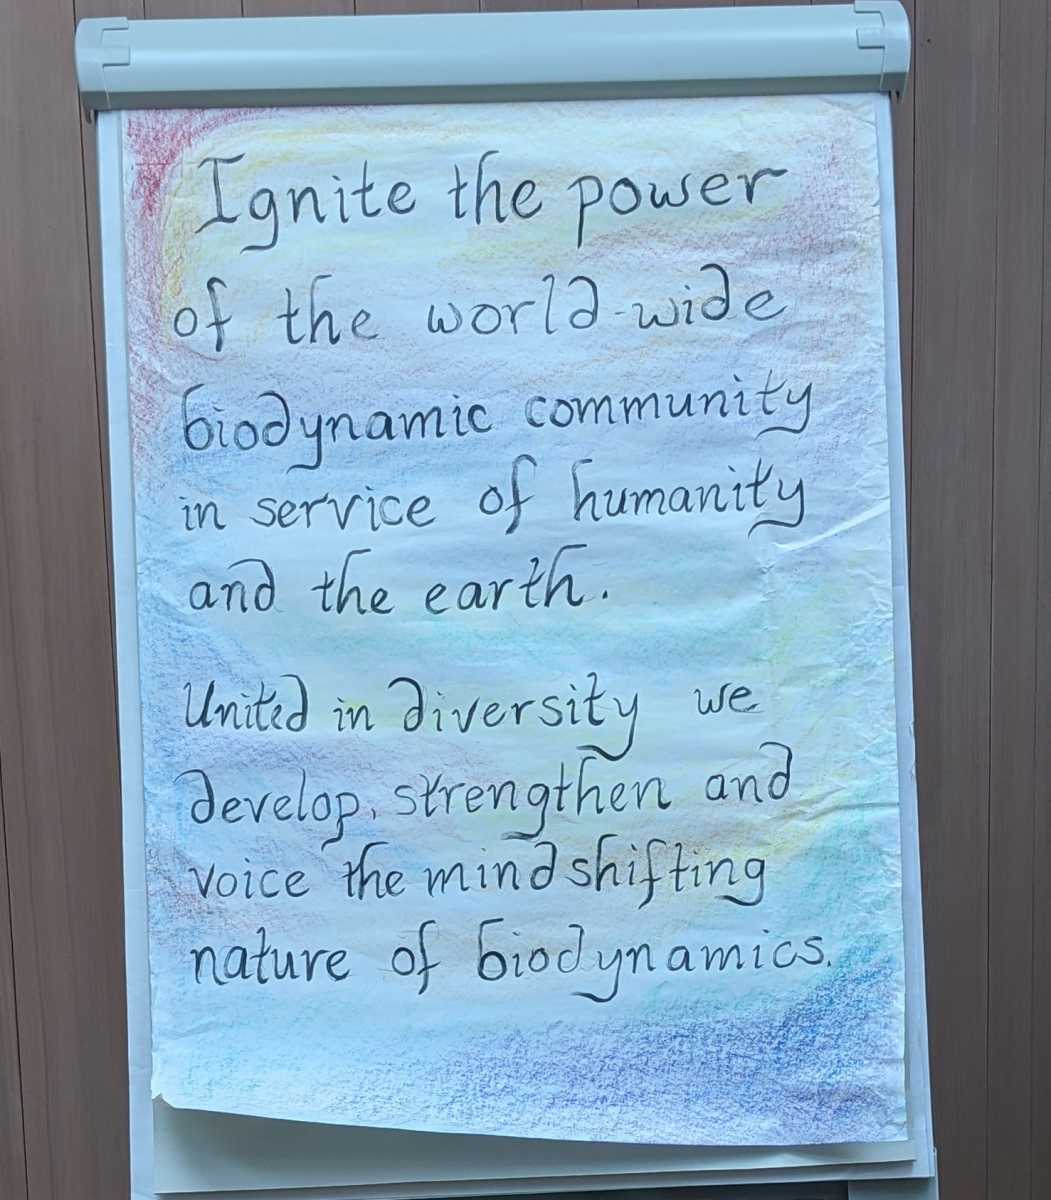 Ignite the power
of the world-wide
biodynamic community
in service of humanity
and the earth.
United in diversity we
develop, strengthen and
voice the mindshifting
nature of biodynamics.